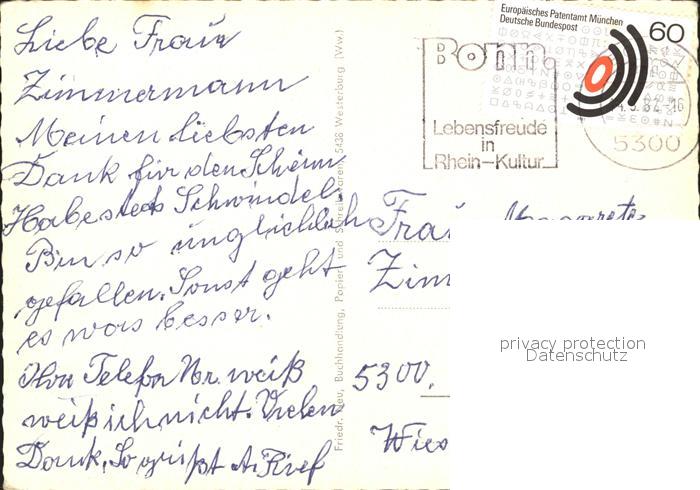 Liebe Frau
Zimmermann
Meinen liebsten
Dank für den Schein
Habe stets Schwindel.
Bin so unglücklich
gefallen. Sonst geht
es was besser.
Ihre Telefon Nr. weiß
weiß ich nicht. Vielen
Dank. So grüßt A.
Friedr. Neu, Buchhandlung, Papier- und Schreibwaren, 5438 Westerburg (Ww.)
Europäisches Patentamt München
Deutsche Bundespost
60
Bonn.
Lebensfreude
in
Rhein-Kultur
5300
Frau Margarete
Zim
5300.
Wies
privacy protection
Datenschutz